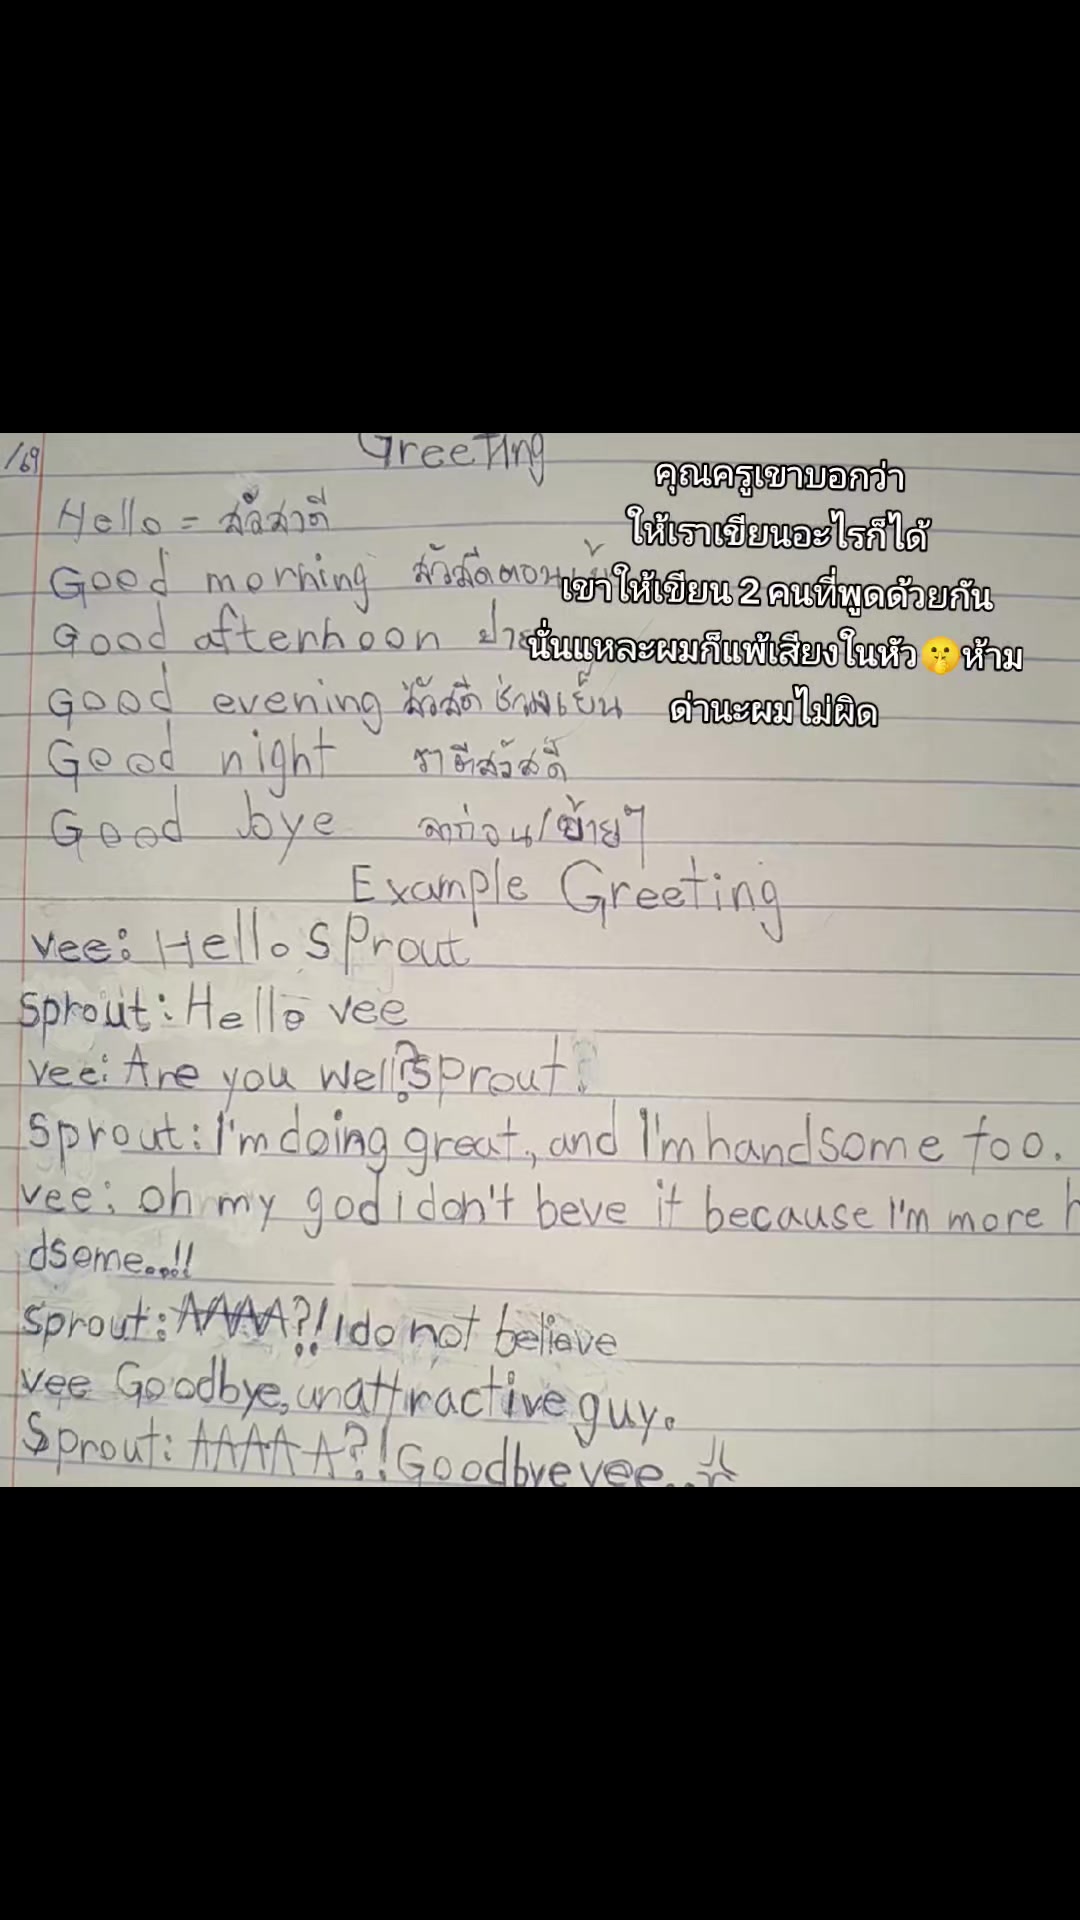 /69
Greeting
คุณครูเขาบอกว่า
ให้เราเขียนอะไรก็ได้
เขาให้เขียน 2 คนที่พูดด้วยกัน
นั่นแหละผมก็แพ้เสียงในหัว🤫ห้าม
ด่านะผมไม่ผิด
Hello = สวัสาดี
Good morning สวัสดีตอน
Good afternoon บ่าย
Good evening สวัสดี ช่วงเย็น
Good night ราตีสวัสดิ์
Good bye ลาก่อน/บ้ายๆ
Example Greeting
vee: Hello sprout
sprout: Hello vee
vee: Are you well?sprout.
sprout: I'm doing great, and I'm handsome too.
vee: oh my god i don't beve it because I'm more h
dsome..!!
sprout: AAAA?! I do not believe
vee Goodbye, unattractive guy.
Sprout: AAAAA?! Goodbye vee..